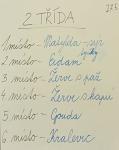 2 TŘÍDA
1. místo - Matylda - sýr
2 místo - Eidam
3 místo - Žervé s paž
4 místo - Žervé s kapií
5 místo - Gouda
6. místo - Kralovec